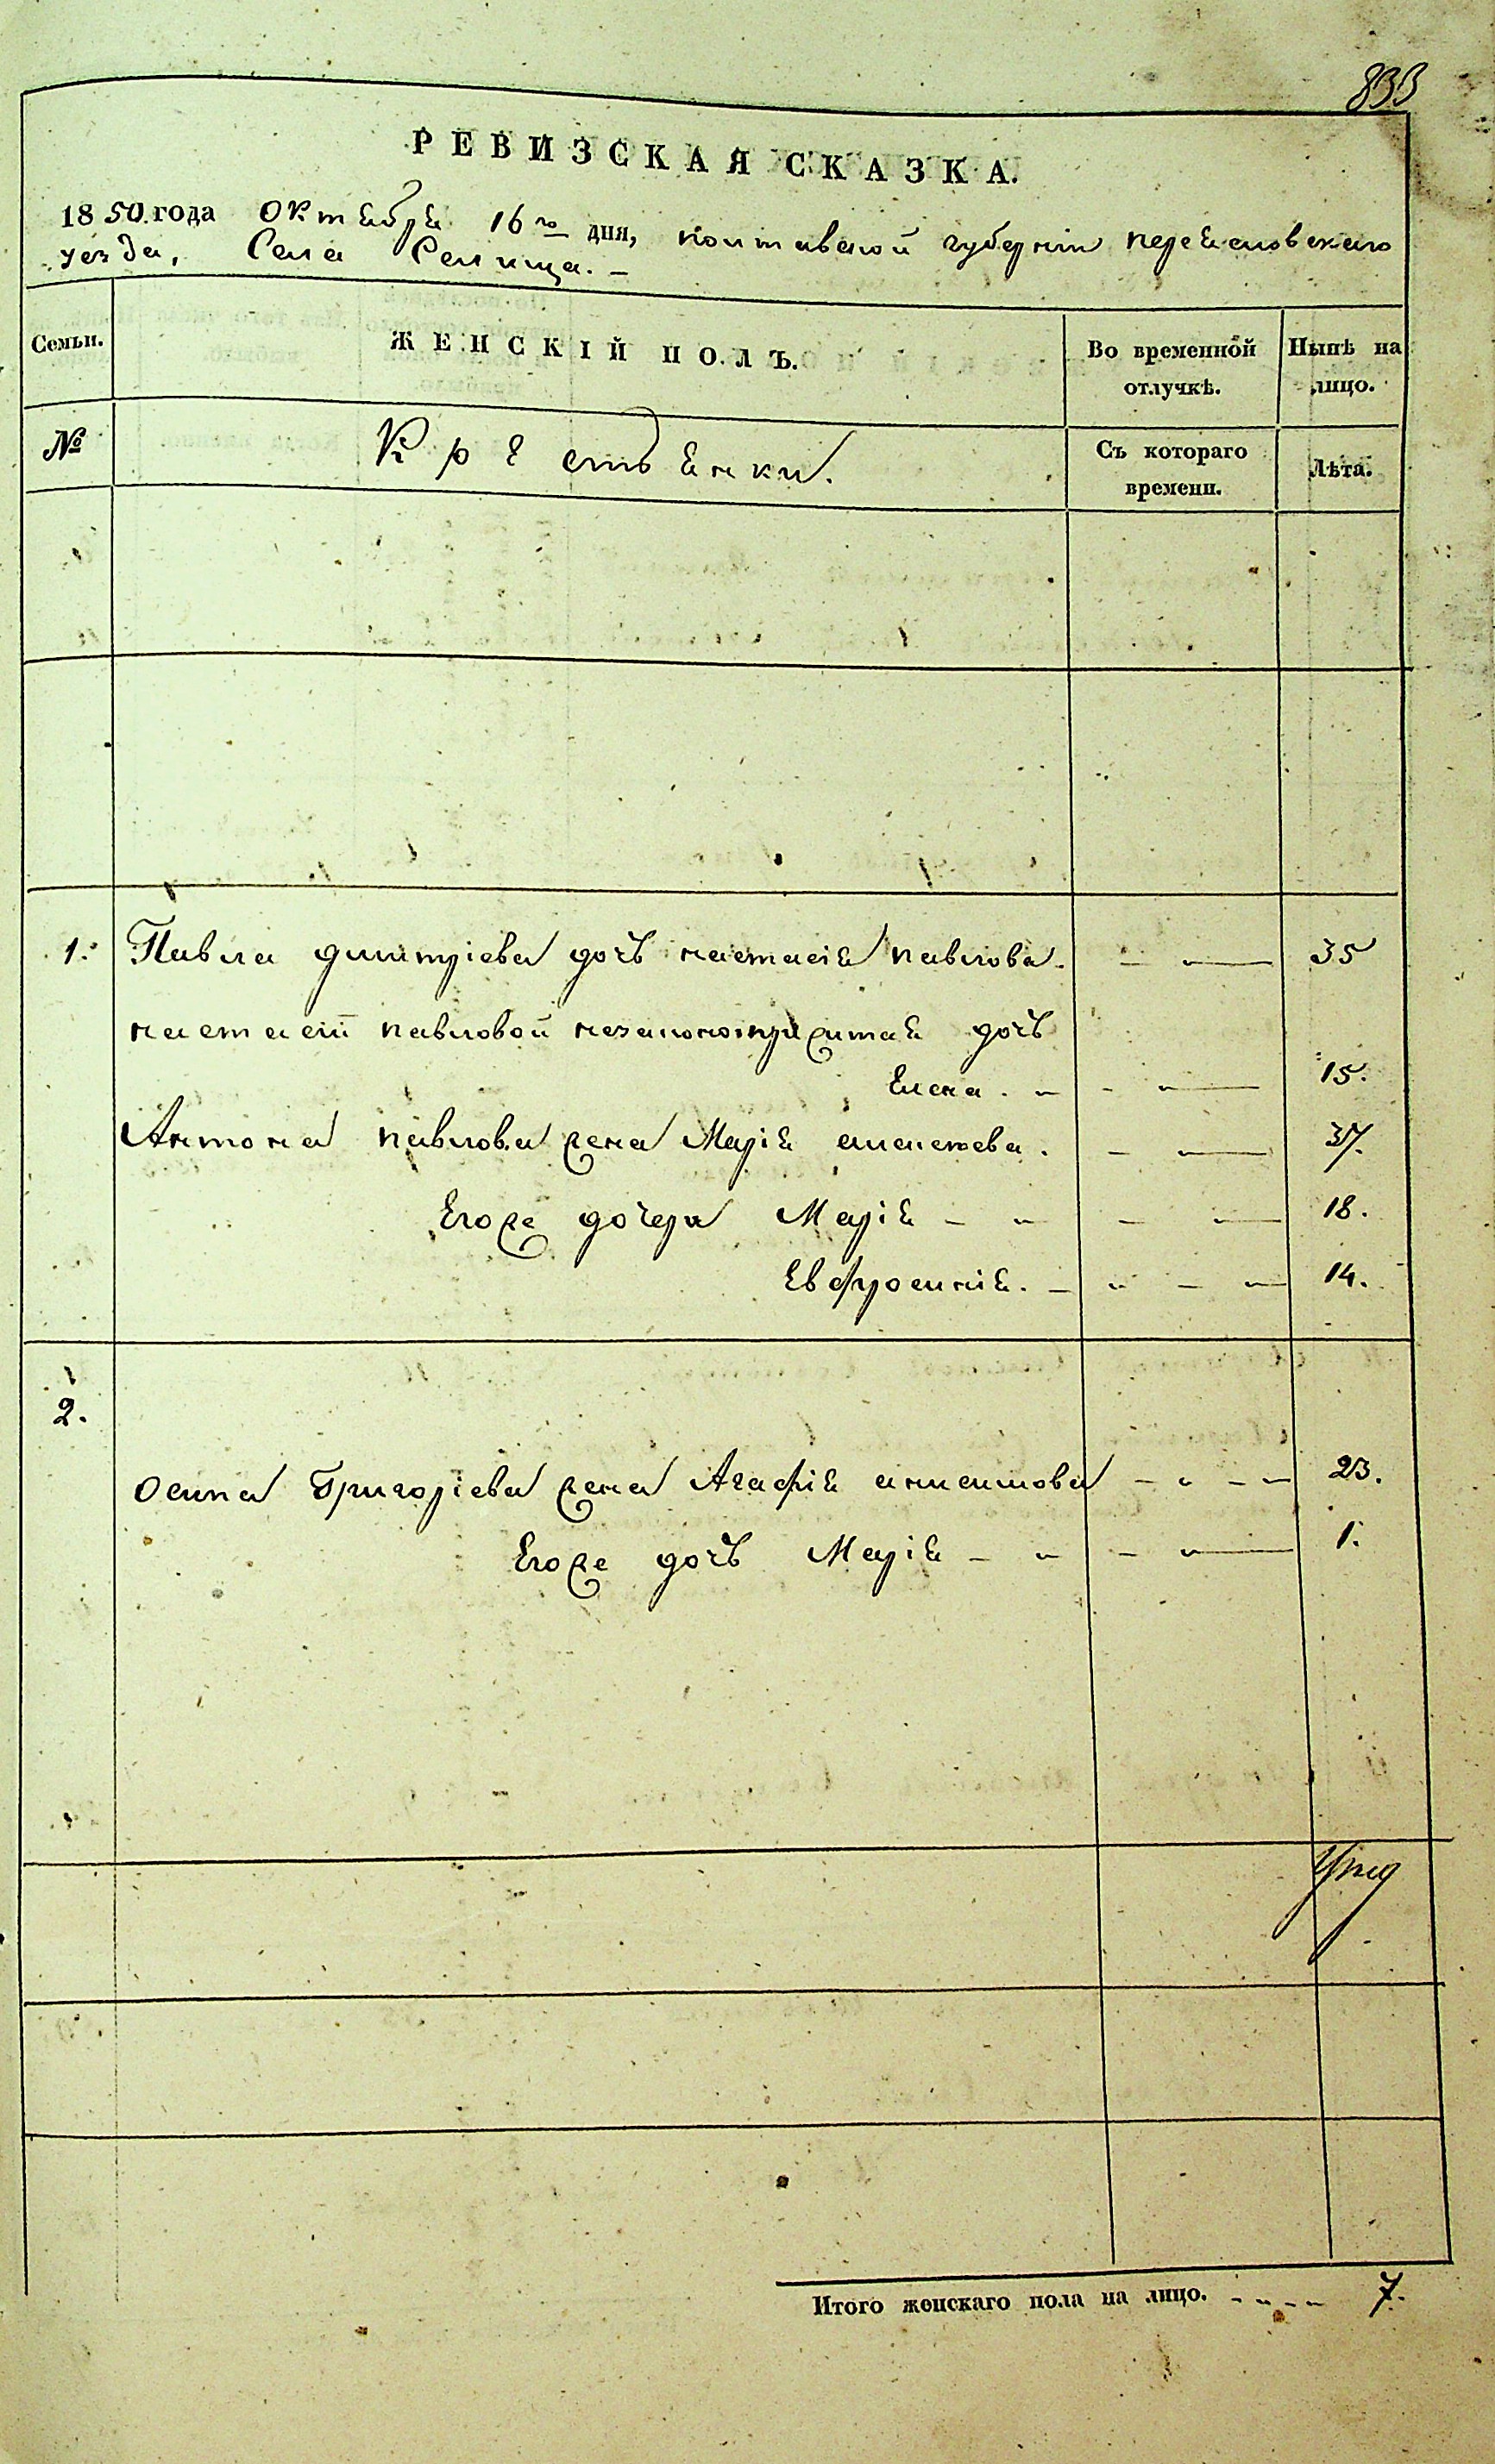 833
РЕВИЗСКАЯ СКАЗКА.
1850. года Октября 16го дня, полтавской губерніи переяславскаго
уезда, Села Селища. –
Семьи.
ЖЕНСКІЙ ПОЛЪ.
Во временной отлучкѣ.
Нынѣ на лицо.
№
Крестьянки.
Съ котораго времени.
Лѣта.
1. Павла дмитріева дочь настасія павлова. 35
настасіи павловой незаконоприжитая дочь
Елена. 15.
Антона павлова жена Марія алексеева. 37.
Егоже дочери Марія 18.
Евфросинія. 14.
2.
осипа Григоріева жена Агафія анисимова 23.
Егоже дочь Марія 1.
Итого женскаго пола на лицо. 7.